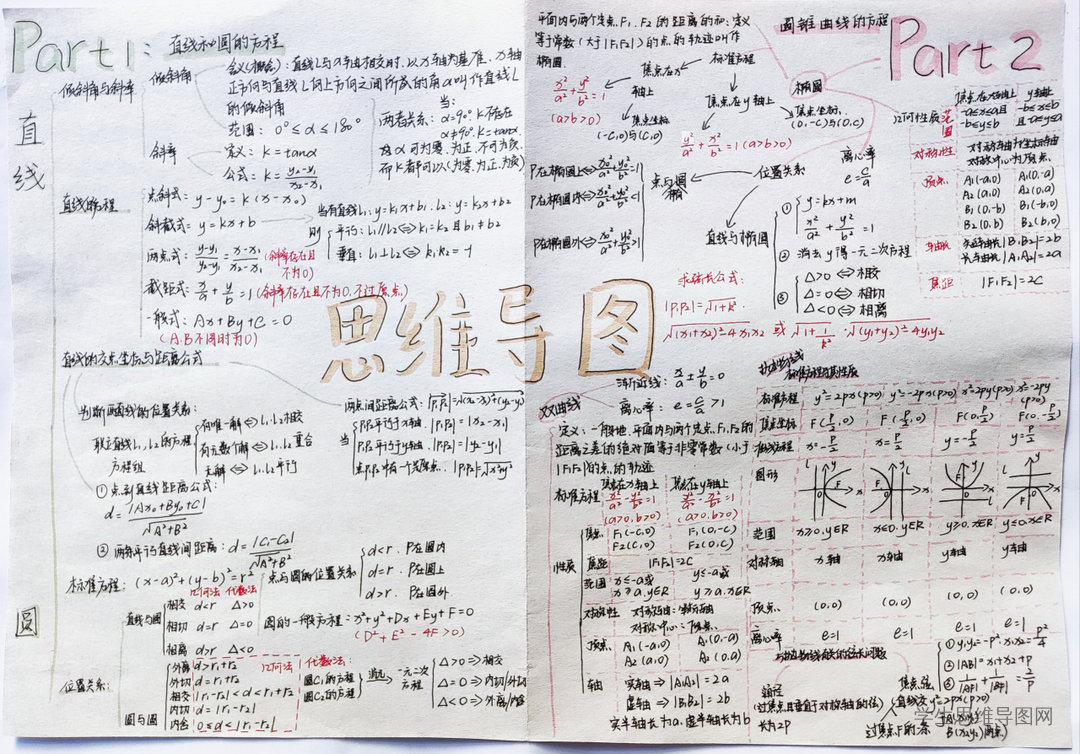 Part 1: 直线和圆的方程
直线
倾斜角与斜率
倾斜角
含义(概念): 直线l与x轴相交时,以x轴为基准,x轴
正方向与直线l向上方向之间所成的角α叫作直线l
的倾斜角
范围: 0°≤α≤180°
斜率
定义: k=tanα
公式: k=(y₂-y₁)/(x₂-x₁)
当:
两者关系: α=90° k不存在
α≠90° k=tanα
角α可为零、为正、不可为负,
而k都可以(为零、为正、为负)
直线的方程
点斜式: y-y₀=k(x-x₀)
斜截式: y=kx+b
两点式: (y-y₁)/(y₂-y₁)=(x-x₁)/(x₂-x₁) (斜率存在且不为0)
截距式: x/a+y/b=1 (斜率存在且不为0,不过原点)
一般式: Ax+By+C=0
(A.B不同时为0)
当有直线l₁: y=k₁x+b₁ l₂: y=k₂x+b₂
则
平行: l₁//l₂⇔k₁=k₂且b₁≠b₂
垂直: l₁⊥l₂⇔k₁k₂=-1
思维导图
直线的交点坐标与距离公式
判断两直线的位置关系:
联立直线l₁、l₂的方程
方程组
有唯一解⇔l₁、l₂相交
有无数个解⇔l₁、l₂重合
无解⇔l₁、l₂平行
两点间距离公式: |P₁P₂|=√(x₂-x₁)²+(y₂-y₁)²
当
P₁P₂平行于x轴 |P₁P₂|=|x₂-x₁|
P₁P₂平行于y轴 |P₁P₂|=|y₂-y₁|
当P₁P₂中有一点是原点 |P₁P₂|=√x²+y²
①点到直线距离公式:
d=|Ax₀+By₀+C|/√A²+B²
②两条平行直线间距离: d=|C₁-C₂|/√A²+B²
圆
标准方程: (x-a)²+(y-b)²=r²
点与圆的位置关系
d<r . P在圆内
d=r . P在圆上
d>r . P在圆外
圆的一般方程: x²+y²+Dx+Ey+F=0
(D²+E²-4F>0)
位置关系:
直线与圆
几何法 代数法
相交 d<r Δ>0
相切 d=r Δ=0
相离 d>r Δ<0
圆与圆
外离 d>r₁+r₂
外切 d=r₁+r₂
相交 |r₁-r₂|<d<r₁+r₂
内切 d=|r₁-r₂|
内含 0≤d<|r₁-r₂|
几何法
代数法:
圆C₁的方程
圆C₂的方程
消元
一元二次
方程
Δ>0⇒相交
Δ=0⇒内切/外切
Δ<0⇒外离/内含
圆锥曲线的方程
Part 2
平面内与两个定点F₁、F₂的距离的和: 定义
等于常数(大于|F₁F₂|)的点的轨迹叫作
椭圆
椭圆
标准方程
焦点在x
轴上
x²/a²+y²/b²=1
(a>b>0)
焦点坐标
(-C,0)与(C,0)
焦点在y轴上
y²/a²+x²/b²=1(a>b>0)
焦点坐标
(0,-C)与(0,C)
离心率
e=c/a
位置关系
点与圆
椭圆
P在椭圆上⇔x₀²/a²+y₀²/b²=1
P在椭圆内⇔x₀²/a²+y₀²/b²<1
P在椭圆外⇔x₀²/a²+y₀²/b²>1
直线与椭圆
① y=kx+m
x²/a²+y²/b²=1
②消去y得一元二次方程
③
Δ>0⇔相交
Δ=0⇔相切
Δ<0⇔相离
求弦长公式:
|P₁P₂|=√1+k²·
√(x₁+x₂)²-4x₁x₂ 或 √1+1/k²·√(y₁+y₂)²-4y₁y₂
几何性质
焦点在x轴上 y轴上
范围 -a≤x≤a且 -b≤y≤b -b≤x≤b 且-a≤y≤a
对称性 对称轴为坐标轴
对称中心为原点
顶点 A₁(-a,0) A₁(0,-a)
A₂(a,0) A₂(0,a)
B₁(0,-b) B₁(-b,0)
B₂(0,b) B₂(b,0)
轴长 短轴长|B₁B₂|=2b
长轴长|A₁A₂|=2a
焦距 |F₁F₂|=2C
双曲线
渐近线: x/a±y/b=0
离心率: e=c/a>1
定义: 一般地,平面内与两个定点F₁、F₂的
距离之差的绝对值等于非零常数(小于
|F₁F₂|)的点的轨迹
标准方程
焦点在x轴上 焦点在y轴上
x²/a²-y²/b²=1 y²/a²-x²/b²=1
(a>0,b>0) (a>0,b>0)
性质
焦点 F₁(-C,0) F₁(0,-C)
F₂(C,0) F₂(0,C)
焦距 |F₁F₂|=2C
范围 x≤-a或 y≤-a或
x≥a,y∈R y≥a,x∈R
对称性 对称轴: 坐标轴
对称中心: 原点
顶点 A₁(-a,0) A₁(0,-a)
A₂(a,0) A₂(0,a)
轴 实轴⇒|A₁A₂|=2a
虚轴⇒|B₁B₂|=2b
实半轴长为a,虚半轴长为b
抛物线
标准方程及其性质
标准方程 y²=2px(p>0) y²=-2px(p>0) x²=2py(p>0) x²=-2py(p>0)
焦点坐标 F(p/2,0) F(-p/2,0) F(0,p/2) F(0,-p/2)
准线方程 x=-p/2 x=p/2 y=-p/2 y=p/2
图形
范围 x≥0,y∈R x≤0,y∈R y≥0,x∈R y≤0,x∈R
对称轴 x轴 x轴 y轴 y轴
顶点 (0,0) (0,0) (0,0) (0,0)
离心率 e=1 e=1 e=1 e=1
①y₁y₂=-p²,x₁x₂=p²/4
②|AB|=x₁+x₂+p
③1/|AF|+1/|BF|=2/p
通径
(过焦点且垂直于对称轴的弦)
长为2P
焦点弦
直线交y²=2px(p>0)
过焦点F的弦
学生思维导图网